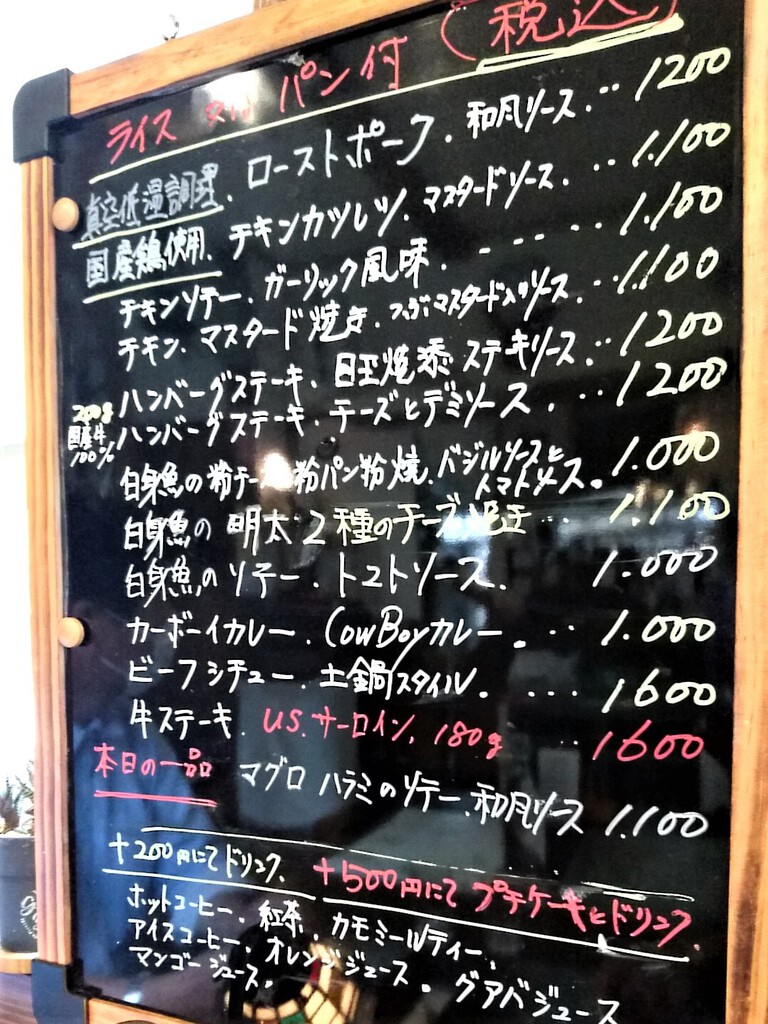 ライス 又は パン付 (税込)
真空低温調理. ローストポーク. 和風ソース... 1200
国産鶏使用. チキンカツレツ. マスタードソース... 1.100
チキンソテー. ガーリック風味. ----- 1.100
チキン. マスタード焼き. つぶマスタード入りソース... 1.100
ハンバーグステーキ. 目玉焼添 ステーキソース... 1200
200g 国産牛 100% ハンバーグステーキ. チーズとデミソース... 1200
白身魚の粉チーズ パン粉焼. バジルソースと
トマトソース. 1.000
白身魚の 明太 2種のチーズ焼き... 1.100
白身魚のソテー. トマトソース. 1.000
カーボーイカレー. CowBoyカレー.... 1.000
ビーフシチュー. 土鍋スタイル..... 1600
牛ステーキ. U.S.サーロイン. 180g ... 1600
本日の一品 マグロ ハラミのソテー. 和風ソース 1.100
+200円にてドリンク. +500円にて プチケーキとドリンク.
ホットコーヒー. 紅茶. カモミールティー.
アイスコーヒー. オレンジジュース. グアバジュース
マンゴージュース.